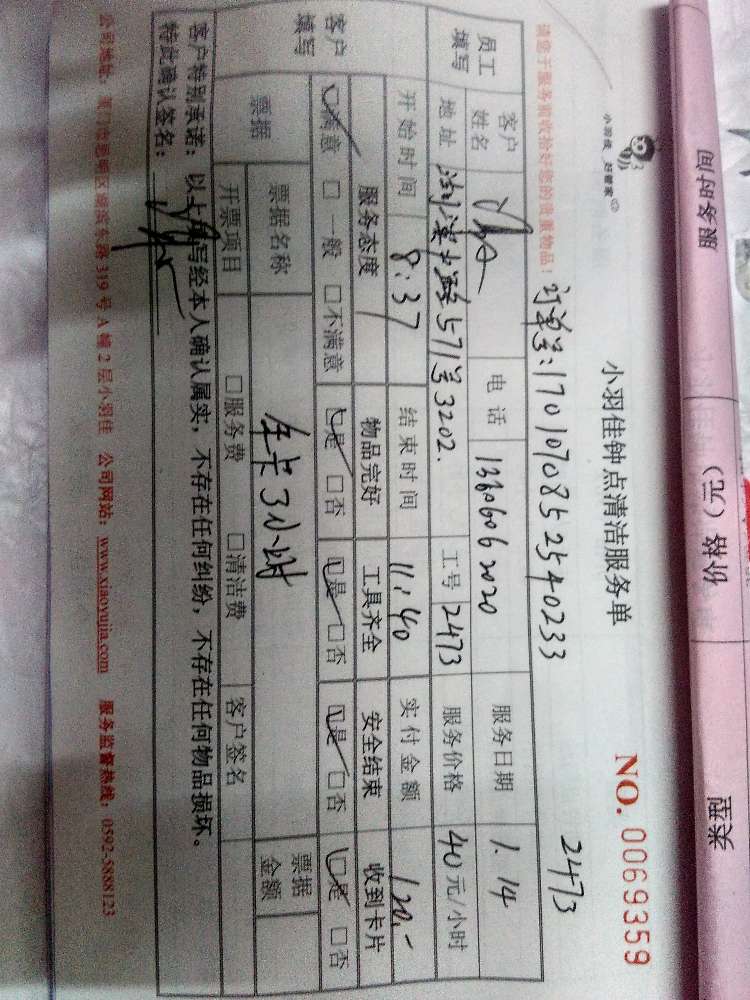 服务时间 价格（元） 类型
小羽佳 好管家
小羽佳钟点清洁服务单
NO. 0069359
2473
订单号:1701070852540233
请您于服务前收拾好您的贵重物品！
员工填写 客户姓名 电话 13606062020 服务日期 1.14
地址 571号3202. 工号 2473 服务价格 40元/小时
开始时间 8:37 结束时间 11:40 实付金额 120.-
客户填写 服务态度 物品完好 工具齐全 安全结束 收到卡片
□满意 □一般 □不满意 □是 □否 □是 □否 □是 □否 □是 □否
票据 票据名称 年卡3小时 票据金额
开票项目 □服务费 □清洁费 客户签名
客户特别承诺：以上填写经本人确认属实，不存在任何纠纷，不存在任何物品损坏。
特此确认签名：
公司地址：厦门市思明区湖滨东路319号A幢2层小羽佳 公司网站：www.xiaoyujia.com 服务监督热线：0592-5888123